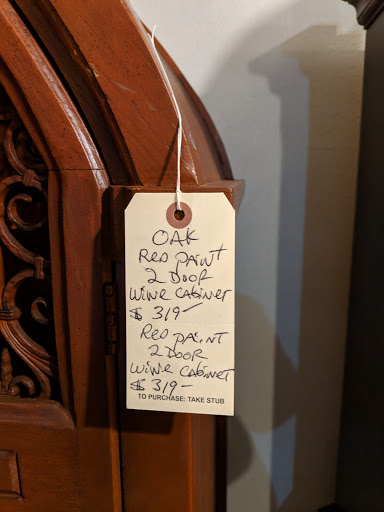 OAK
RED PAINT
2 DOOR
WINE CABINET
$ 319-
RED PAINT
2 DOOR
WINE CABINET
$ 319-
TO PURCHASE: TAKE STUB